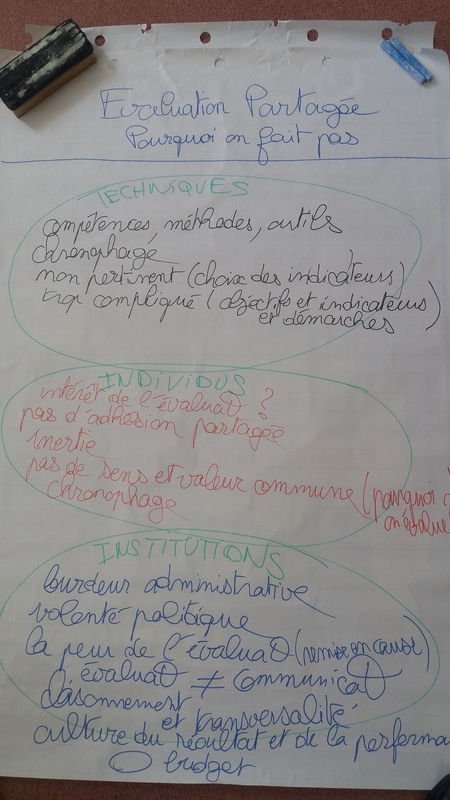 Evaluation Partagée
Pourquoi on fait pas
TECHNIQUES
compétences, méthodes, outils
chronophage
non pertinent (choix des indicateurs)
trop compliqué (objectifs et indicateurs)
et démarches
INDIVIDUS
intérêt de l'évaluat° ?
pas d'adhésion partagée
inertie
pas de sens et valeur commune (pourquoi ?
on évalue
chronophage
INSTITUTIONS
lourdeur administrative
volonté politique
la peur de l'évaluat° (remise en cause)
évaluat° ≠ communicat°
cloisonnement
et transversalité
culture du résultat et de la performa
budget